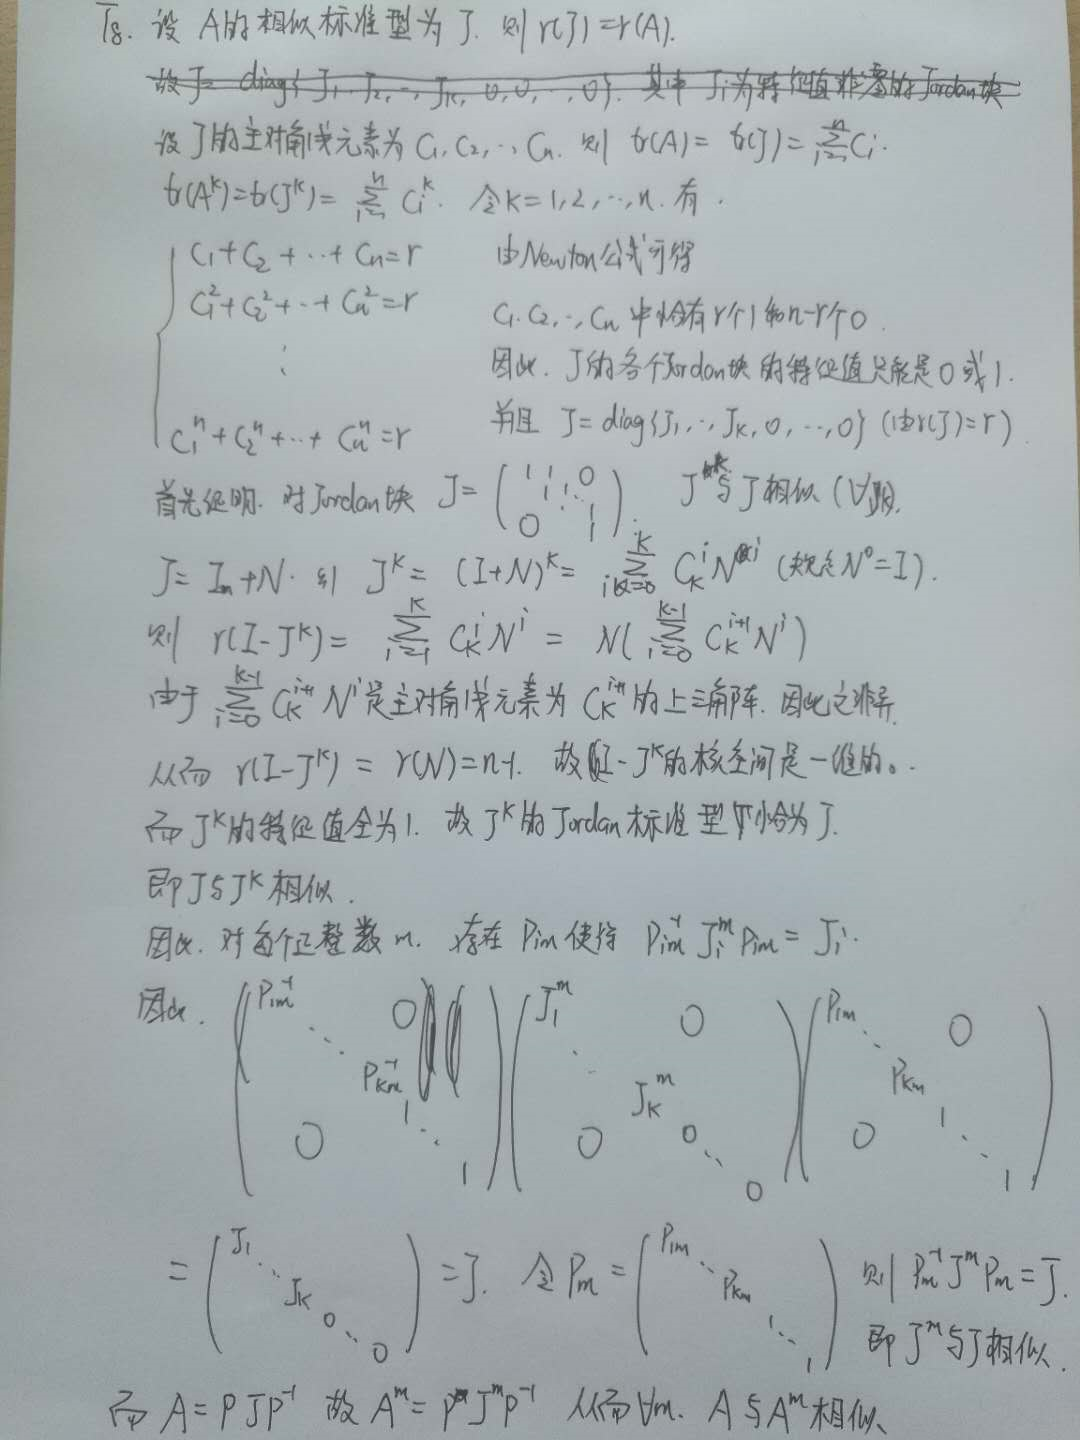 T8. 设 A的相似标准型为 J. 则 r(J)=r(A).
故J= diag{J₁, J₂, ⋯, Jₖ, 0, 0, ⋯, 0}. 其中 Jᵢ为特征值非零的Jordan块
设 J的主对角线元素为 C₁, C₂, ⋯, Cₙ. 则 tr(A) = tr(J) = ∑ᵢ₌₁ⁿ Cᵢ.
tr(Aᵏ)=tr(Jᵏ)= ∑ᵢ₌₁ⁿ Cᵢᵏ. 令k=1,2,⋯,n. 有.
C₁+C₂+⋯+Cₙ=r 由Newton公式可得
C₁²+C₂²+⋯+Cₙ²=r C₁, C₂, ⋯, Cₙ 中恰有 r个1和n-r个0.
⋮ 因此. J的各个Jordan块的特征值只能是0或1.
C₁ⁿ+C₂ⁿ+⋯+Cₙⁿ=r 并且 J=diag{J₁, ⋯, Jₖ, 0, ⋯, 0} (由r(J)=r)
首先证明. 对Jordan块 J= ( 1 1 0 1 1 ⋱ 0 1 ). Jᵏ与J相似 (∀k).
J= Iₙ+N. 则 Jᵏ= (I+N)ᵏ= ∑ᵢ₌₀ᵏ Cₖⁱ Nⁱ (规定N⁰=I).
则 r(I-Jᵏ)= ∑ᵢ₌₁ᵏ Cₖⁱ Nⁱ = N( ∑ᵢ₌₀ᵏ⁻¹ Cₖⁱ⁺¹ Nⁱ )
由于 ∑ᵢ₌₀ᵏ⁻¹ Cₖⁱ⁺¹ Nⁱ是主对角线元素为 Cₖⁱ⁺¹的上三角阵. 因此之非异.
从而 r(I-Jᵏ) = r(N)=n-1. 故 I-Jᵏ的核空间是一维的.
而 Jᵏ的特征值全为1. 故 Jᵏ的 Jordan 标准型恰为 J.
即J与Jᵏ相似.
因此. 对每个正整数 m. 存在 Pim 使得 Pim⁻¹ Jᵢᵐ Pim = Jᵢ.
因此. ( P₁m⁻¹ ⋱ Pₖm⁻¹ 1 ⋱ 1 0 0 ) ( J₁ᵐ ⋱ Jₖᵐ 0 ⋱ 0 0 0 ) ( P₁m ⋱ Pₖm 1 ⋱ 1 0 0 )
= ( J₁ ⋱ Jₖ 0 ⋱ 0 ) =J. 令 Pm = ( P₁m ⋱ Pₖm 1 ⋱ 1 ) 则 Pm⁻¹ Jᵐ Pm = J.
即 Jᵐ与J相似.
而 A= PJP⁻¹ 故 Aᵐ= PJᵐP⁻¹ 从而∀m. A与Aᵐ相似.